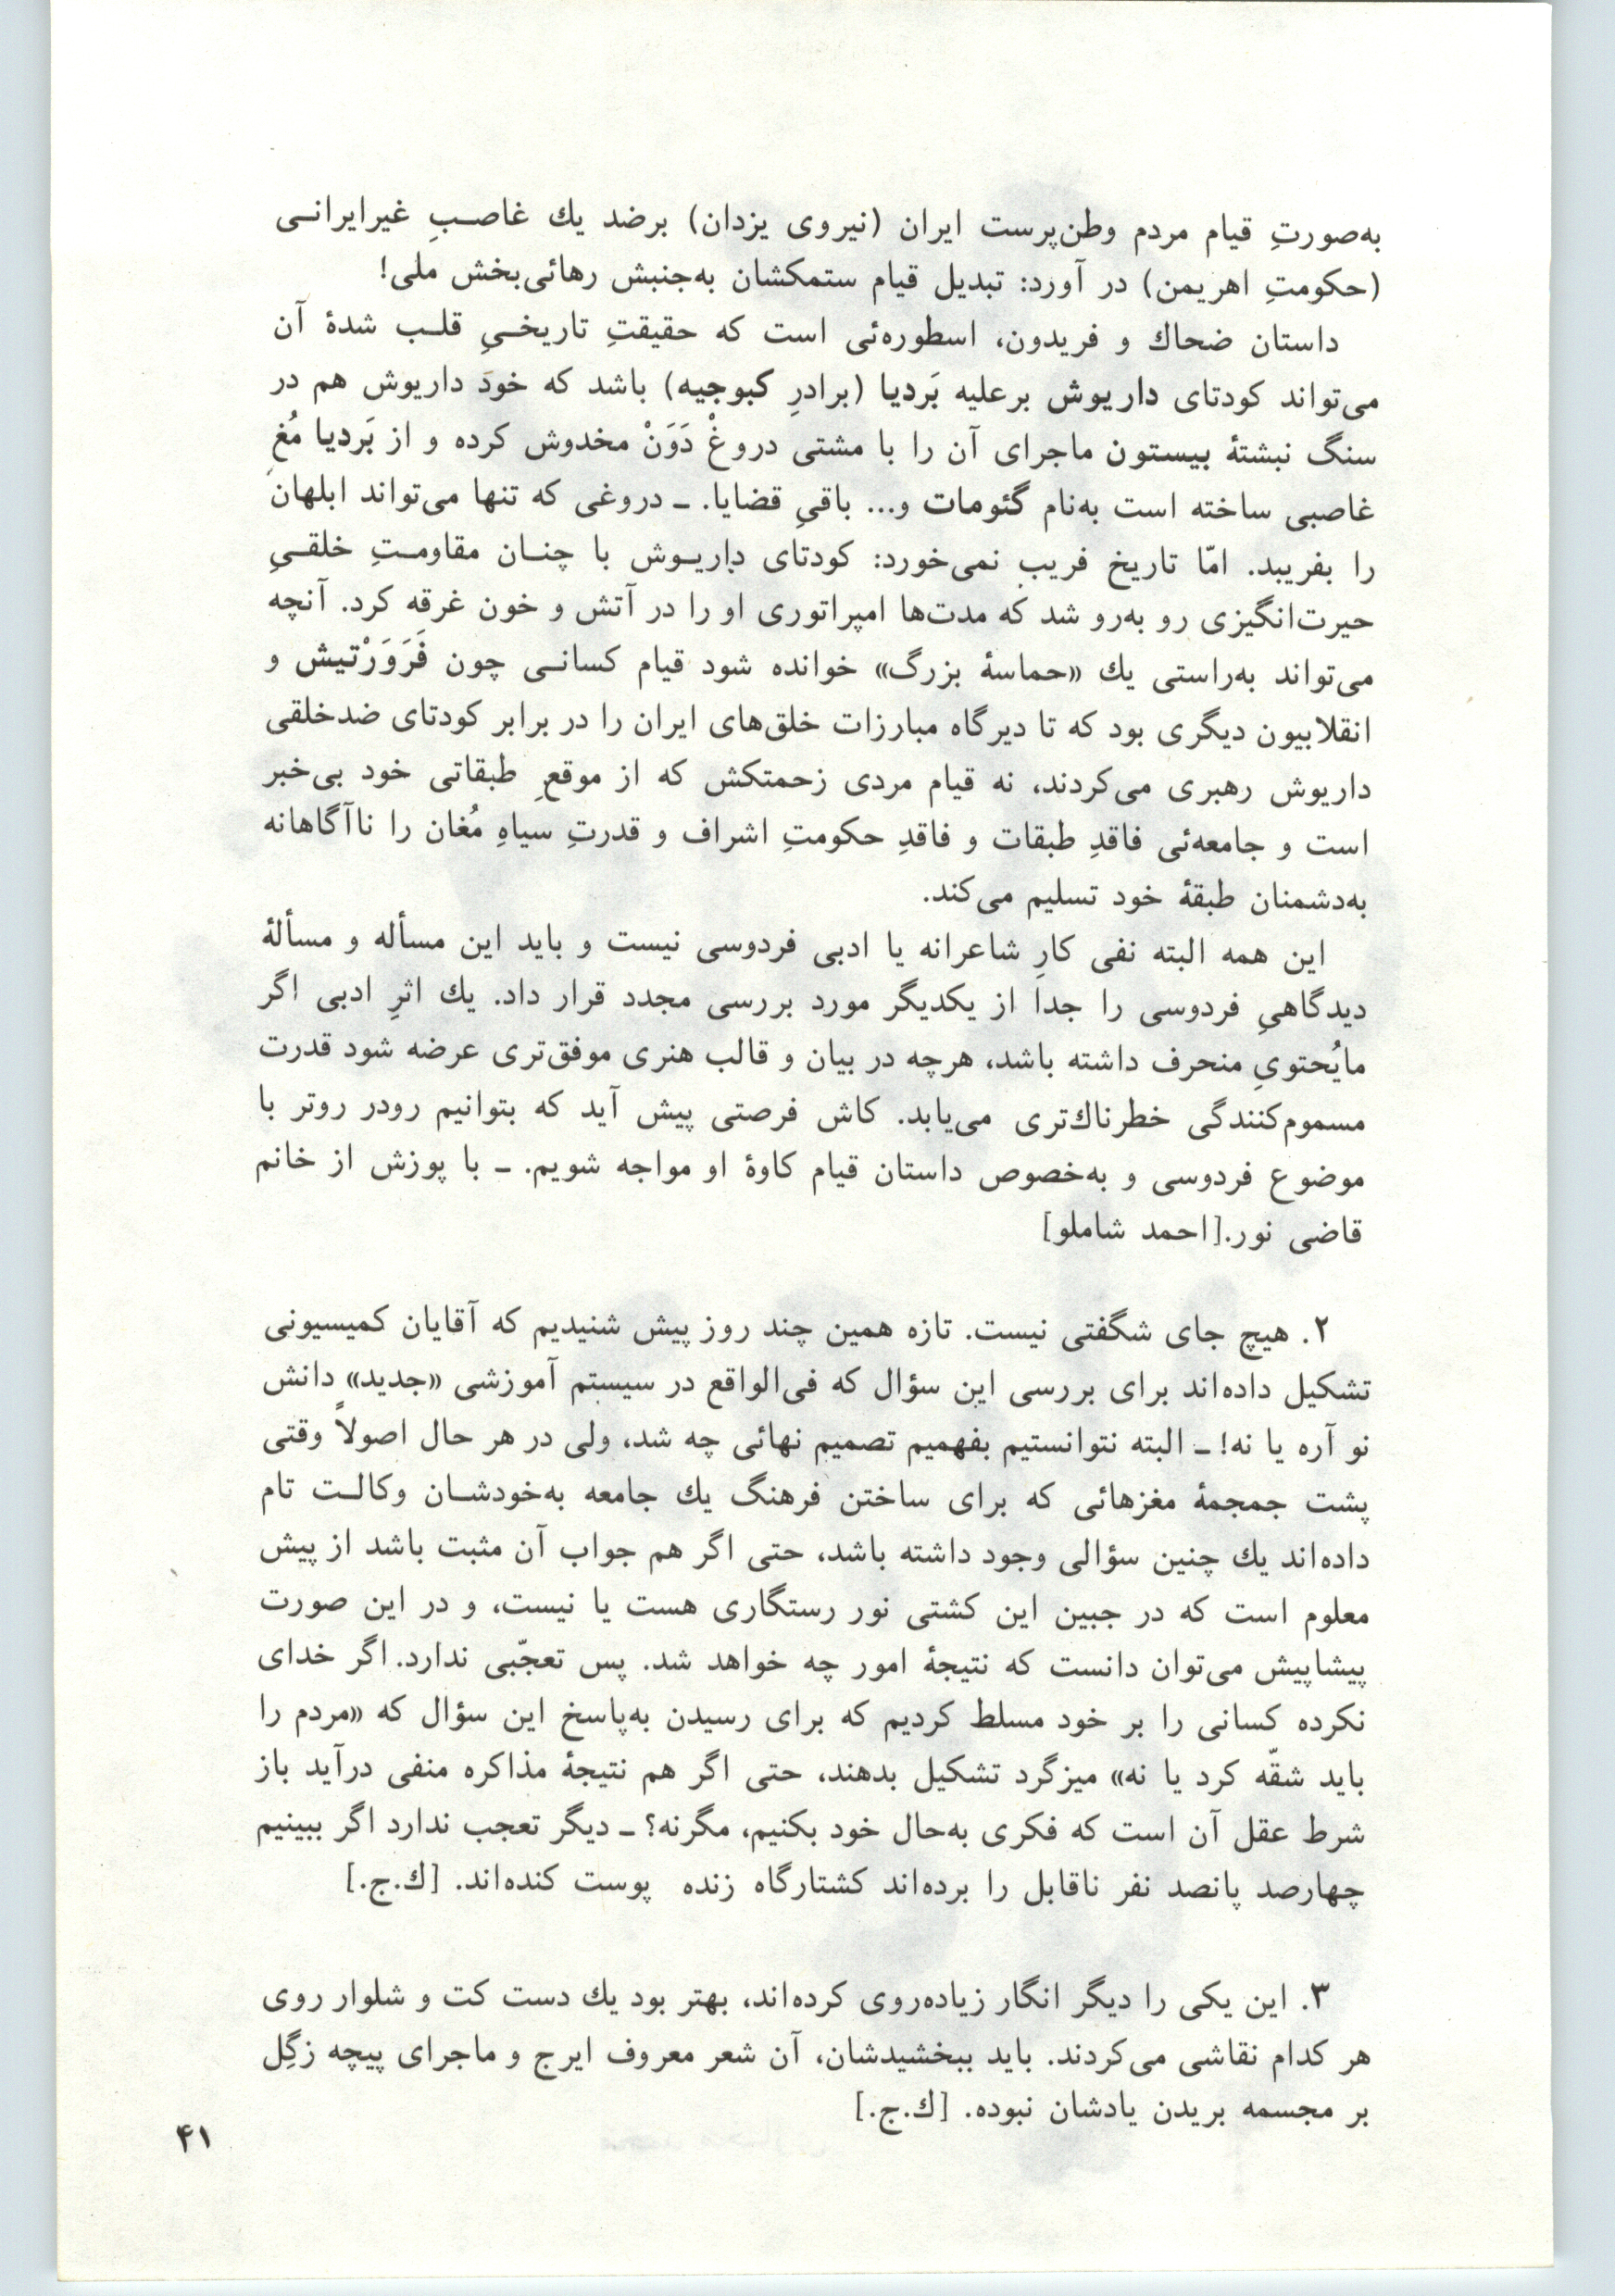 به‌صورتِ قیام مردم وطن‌پرست ایران (نیروی یزدان) برضد یك غاصـبِ غیرایرانـی
(حکومتِ اهریمن) در آورد: تبدیل قیام ستمکشان به‌جنبش رهائی‌بخش ملی!
داستان ضحاك و فریدون، اسطوره‌ئی است که حقیقتِ تاریخـیِ قلـب شدهٔ آن
می‌تواند کودتای داریوش برعلیه بَردیا (برادرِ کبوجیه) باشد که خودَ داریوش هم در
سنگ نبشتهٔ بیستون ماجرای آن را با مشتی دروغْ دَوَنْ مخدوش کرده و از بَردیا مُغِ
غاصبی ساخته است به‌نام گئومات و... باقیِ قضایا. ـ دروغی که تنها می‌تواند ابلهان
را بفریبد. امّا تاریخ فریب نمی‌خورد: کودتای داریـوش با چنـان مقاومـتِ خلقـیِ
حیرت‌انگیزی رو به‌رو شد که مدت‌ها امپراتوری او را در آتش و خون غرقه کرد. آنچه
می‌تواند به‌راستی یك «حماسهٔ بزرگ» خوانده شود قیام کسانـی چون فَرَوَرْتیش و
انقلابیون دیگری بود که تا دیرگاه مبارزات خلق‌های ایران را در برابر کودتای ضدخلقی
داریوش رهبری می‌کردند، نه قیام مردی زحمتکش که از موقعِ طبقاتی خود بی‌خبر
است و جامعه‌ئی فاقدِ طبقات و فاقدِ حکومتِ اشراف و قدرتِ سیاهِ مُغان را ناآگاهانه
به‌دشمنان طبقهٔ خود تسلیم می‌کند.
این همه البته نفی کارِ شاعرانه یا ادبی فردوسی نیست و باید این مسأله و مسألهٔ
دیدگاهیِ فردوسی را جدا از یکدیگر مورد بررسی مجدد قرار داد. یك اثرِ ادبی اگر
مایُحتویِ منحرف داشته باشد، هرچه در بیان و قالب هنری موفق‌تری عرضه شود قدرت
مسموم‌کنندگی خطرناك‌تری می‌یابد. کاش فرصتی پیش آید که بتوانیم رودر روتر با
موضوع فردوسی و به‌خصوص داستان قیام کاوهٔ او مواجه شویم. ـ با پوزش از خانم
قاضی نور.[احمد شاملو]
۲. هیچ جای شگفتی نیست. تازه همین چند روز پیش شنیدیم که آقایان کمیسیونی
تشکیل داده‌اند برای بررسی این سؤال که فی‌الواقع در سیستم آموزشی «جدید» دانش
نو آره یا نه! ـ البته نتوانستیم بفهمیم تصمیم نهائی چه شد، ولی در هر حال اصولاً وقتی
پشت جمجمهٔ مغزهائی که برای ساختن فرهنگ یك جامعه به‌خودشـان وکالـت تام
داده‌اند یك چنین سؤالی وجود داشته باشد، حتی اگر هم جواب آن مثبت باشد از پیش
معلوم است که در جبین این کشتی نور رستگاری هست یا نیست، و در این صورت
پیشاپیش می‌توان دانست که نتیجهٔ امور چه خواهد شد. پس تعجّبی ندارد. اگر خدای
نکرده کسانی را بر خود مسلط کردیم که برای رسیدن به‌پاسخ این سؤال که «مردم را
باید شقّه کرد یا نه» میزگرد تشکیل بدهند، حتی اگر هم نتیجهٔ مذاکره منفی درآید باز
شرط عقل آن است که فکری به‌حال خود بکنیم، مگرنه؟ ـ دیگر تعجب ندارد اگر ببینیم
چهارصد پانصد نفر ناقابل را برده‌اند کشتارگاه زنده پوست کنده‌اند. [ك.ج.]
۳. این یکی را دیگر انگار زیاده‌روی کرده‌اند، بهتر بود یك دست کت و شلوار روی
هر کدام نقاشی می‌کردند. باید ببخشیدشان، آن شعر معروف ایرج و ماجرای پیچه زگِل
بر مجسمه بریدن یادشان نبوده. [ك.ج.]
۴۱